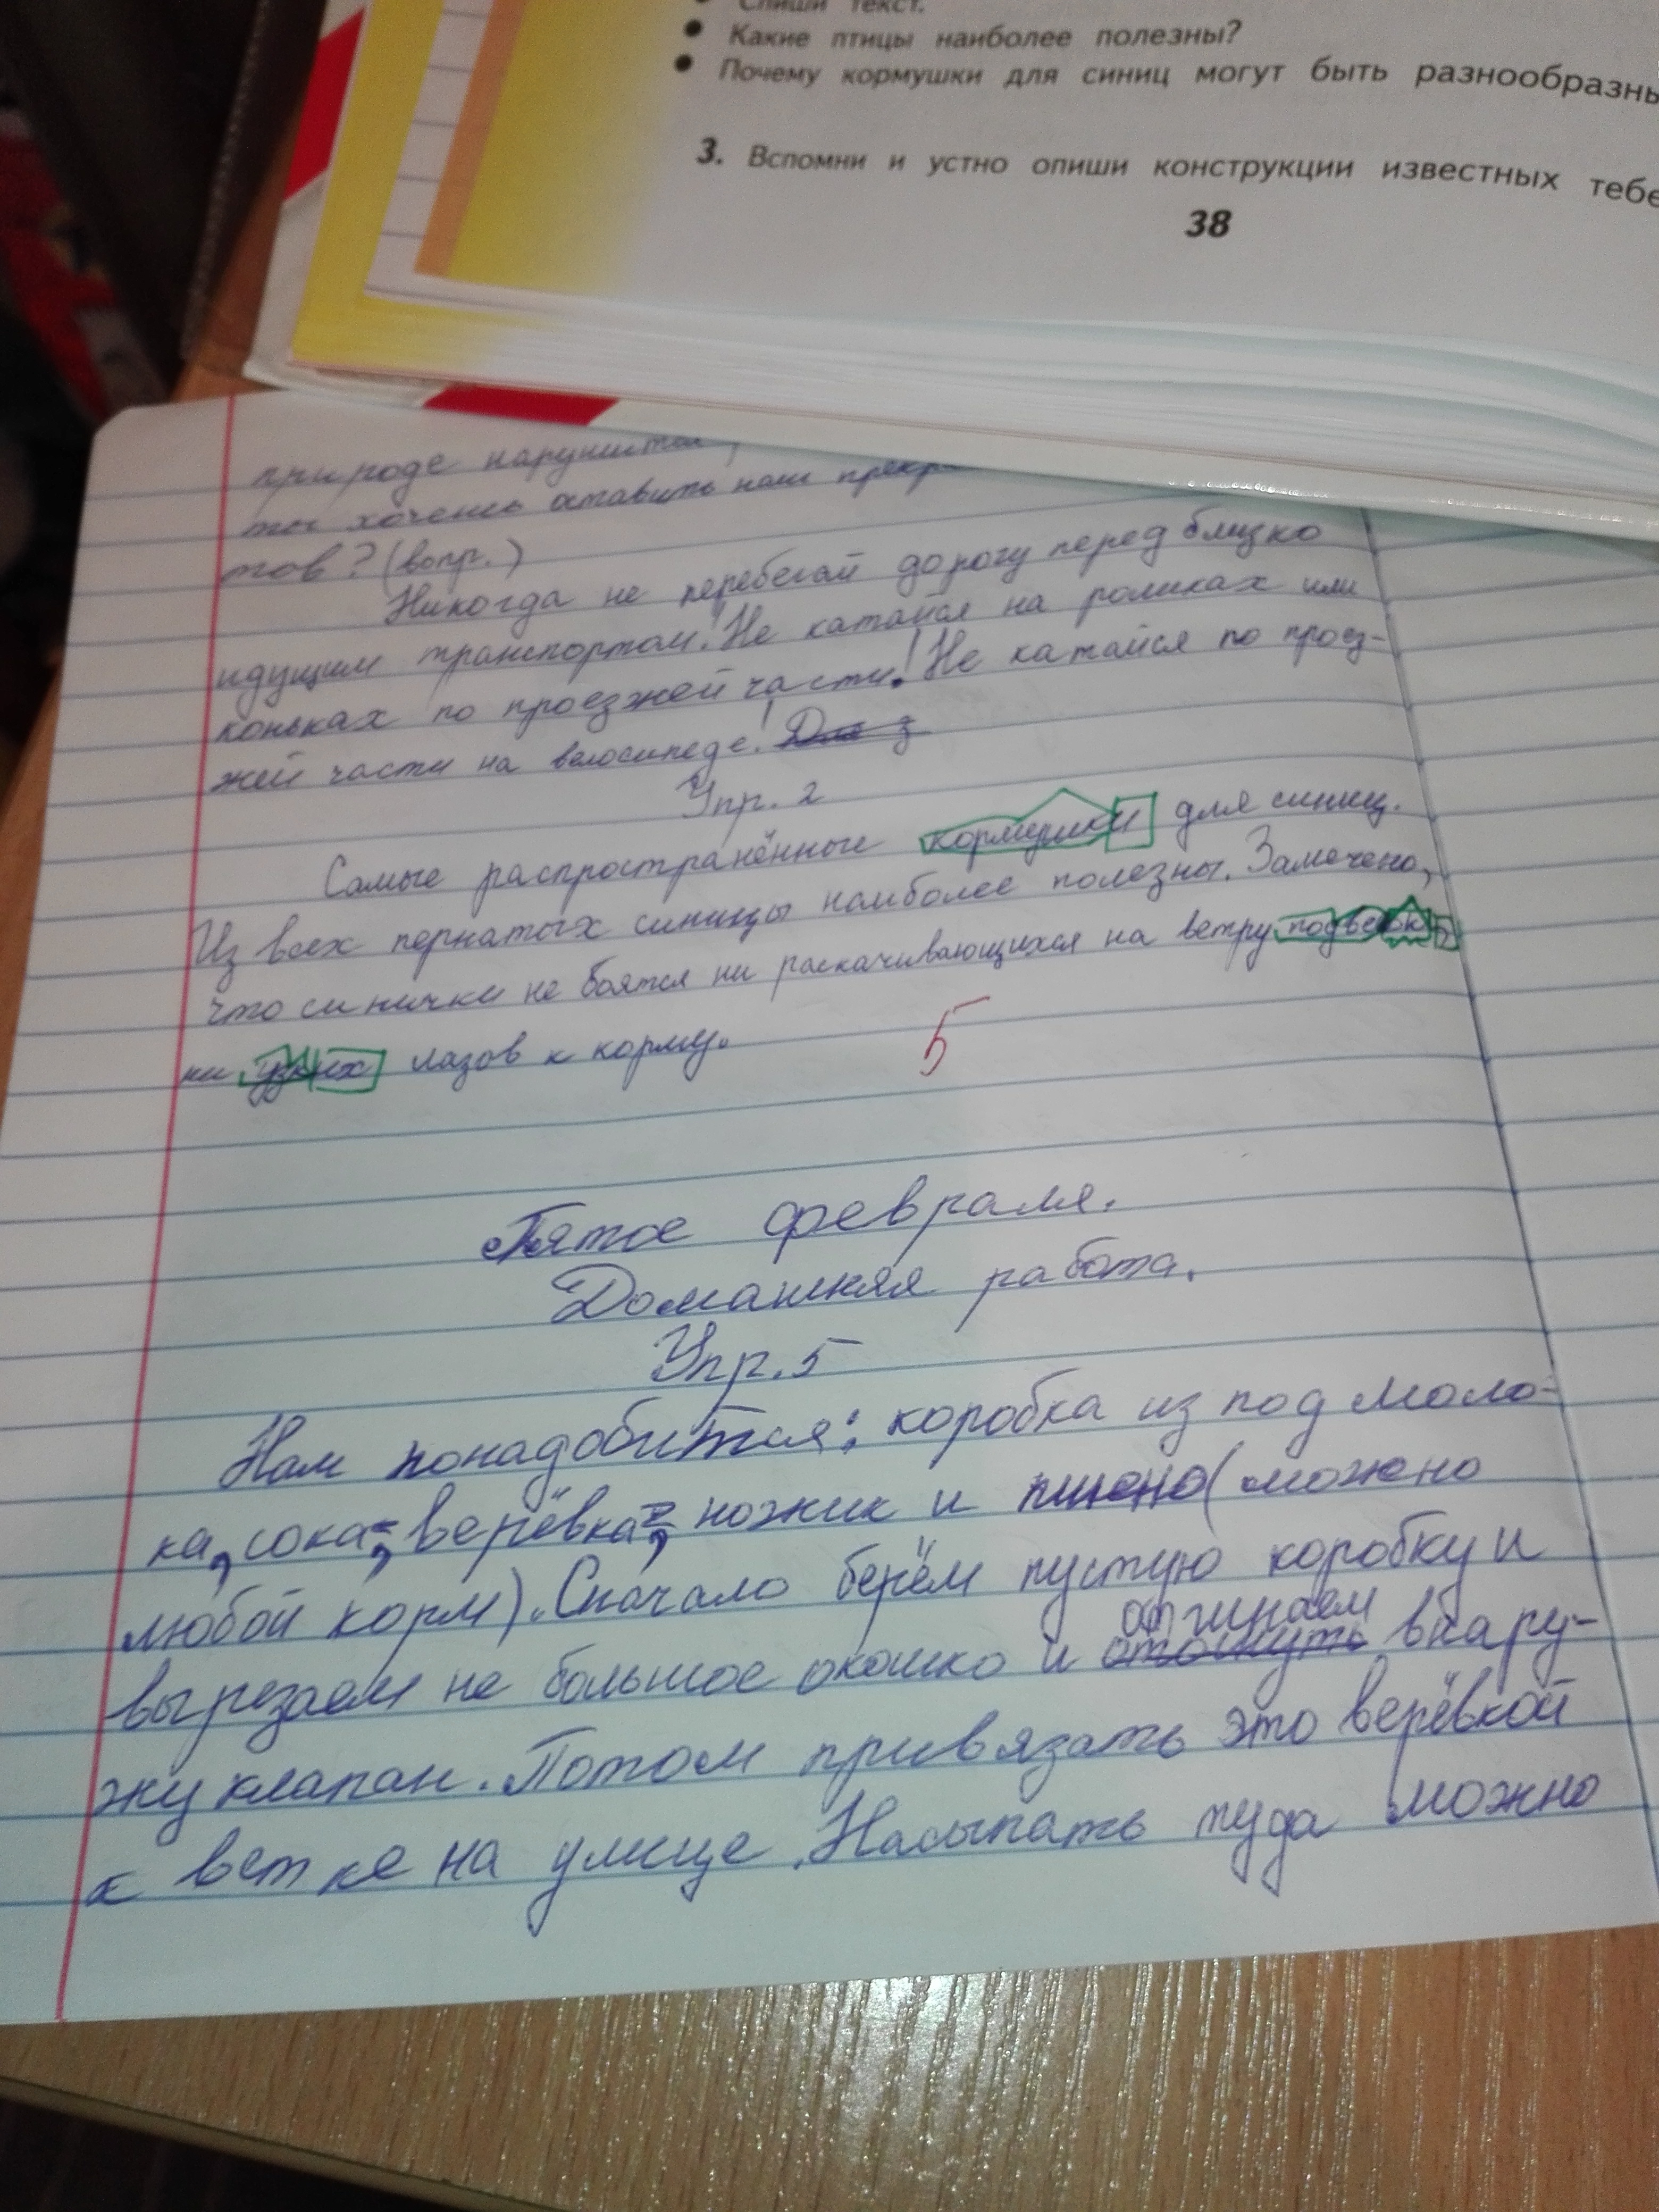 Спиши текст.
• Какие птицы наиболее полезны?
• Почему кормушки для синиц могут быть разнообразны
3. Вспомни и устно опиши конструкции известных тебе
38
природе
ты хочешь оставить наш
тов? (вопр.)
Никогда не перебегай дорогу перед близко
идущим транспортом! Не катайся на роликах или
коньках по проезжей части! Не катайся по проез-
жей части на велосипеде!
Упр. 2
Самые распространённые кормушки для синиц.
Из всех пернатых синицы наиболее полезны. Замечено,
что синички не боятся ни раскачивающихся на ветру
ни узких лазов к корму.
5
Пятое февраля.
Домашняя работа.
Упр. 5
Нам понадобится: коробка из под моло-
ка, сока, верёвка, ножик и пшено (можно
любой корм). Сначало берём пустую коробку и
отгинаем
вырезаем не большое окошко и отогнуть внару-
жу клапан. Потом привязать это верёвкой
к ветке на улице. Насыпать туда можно